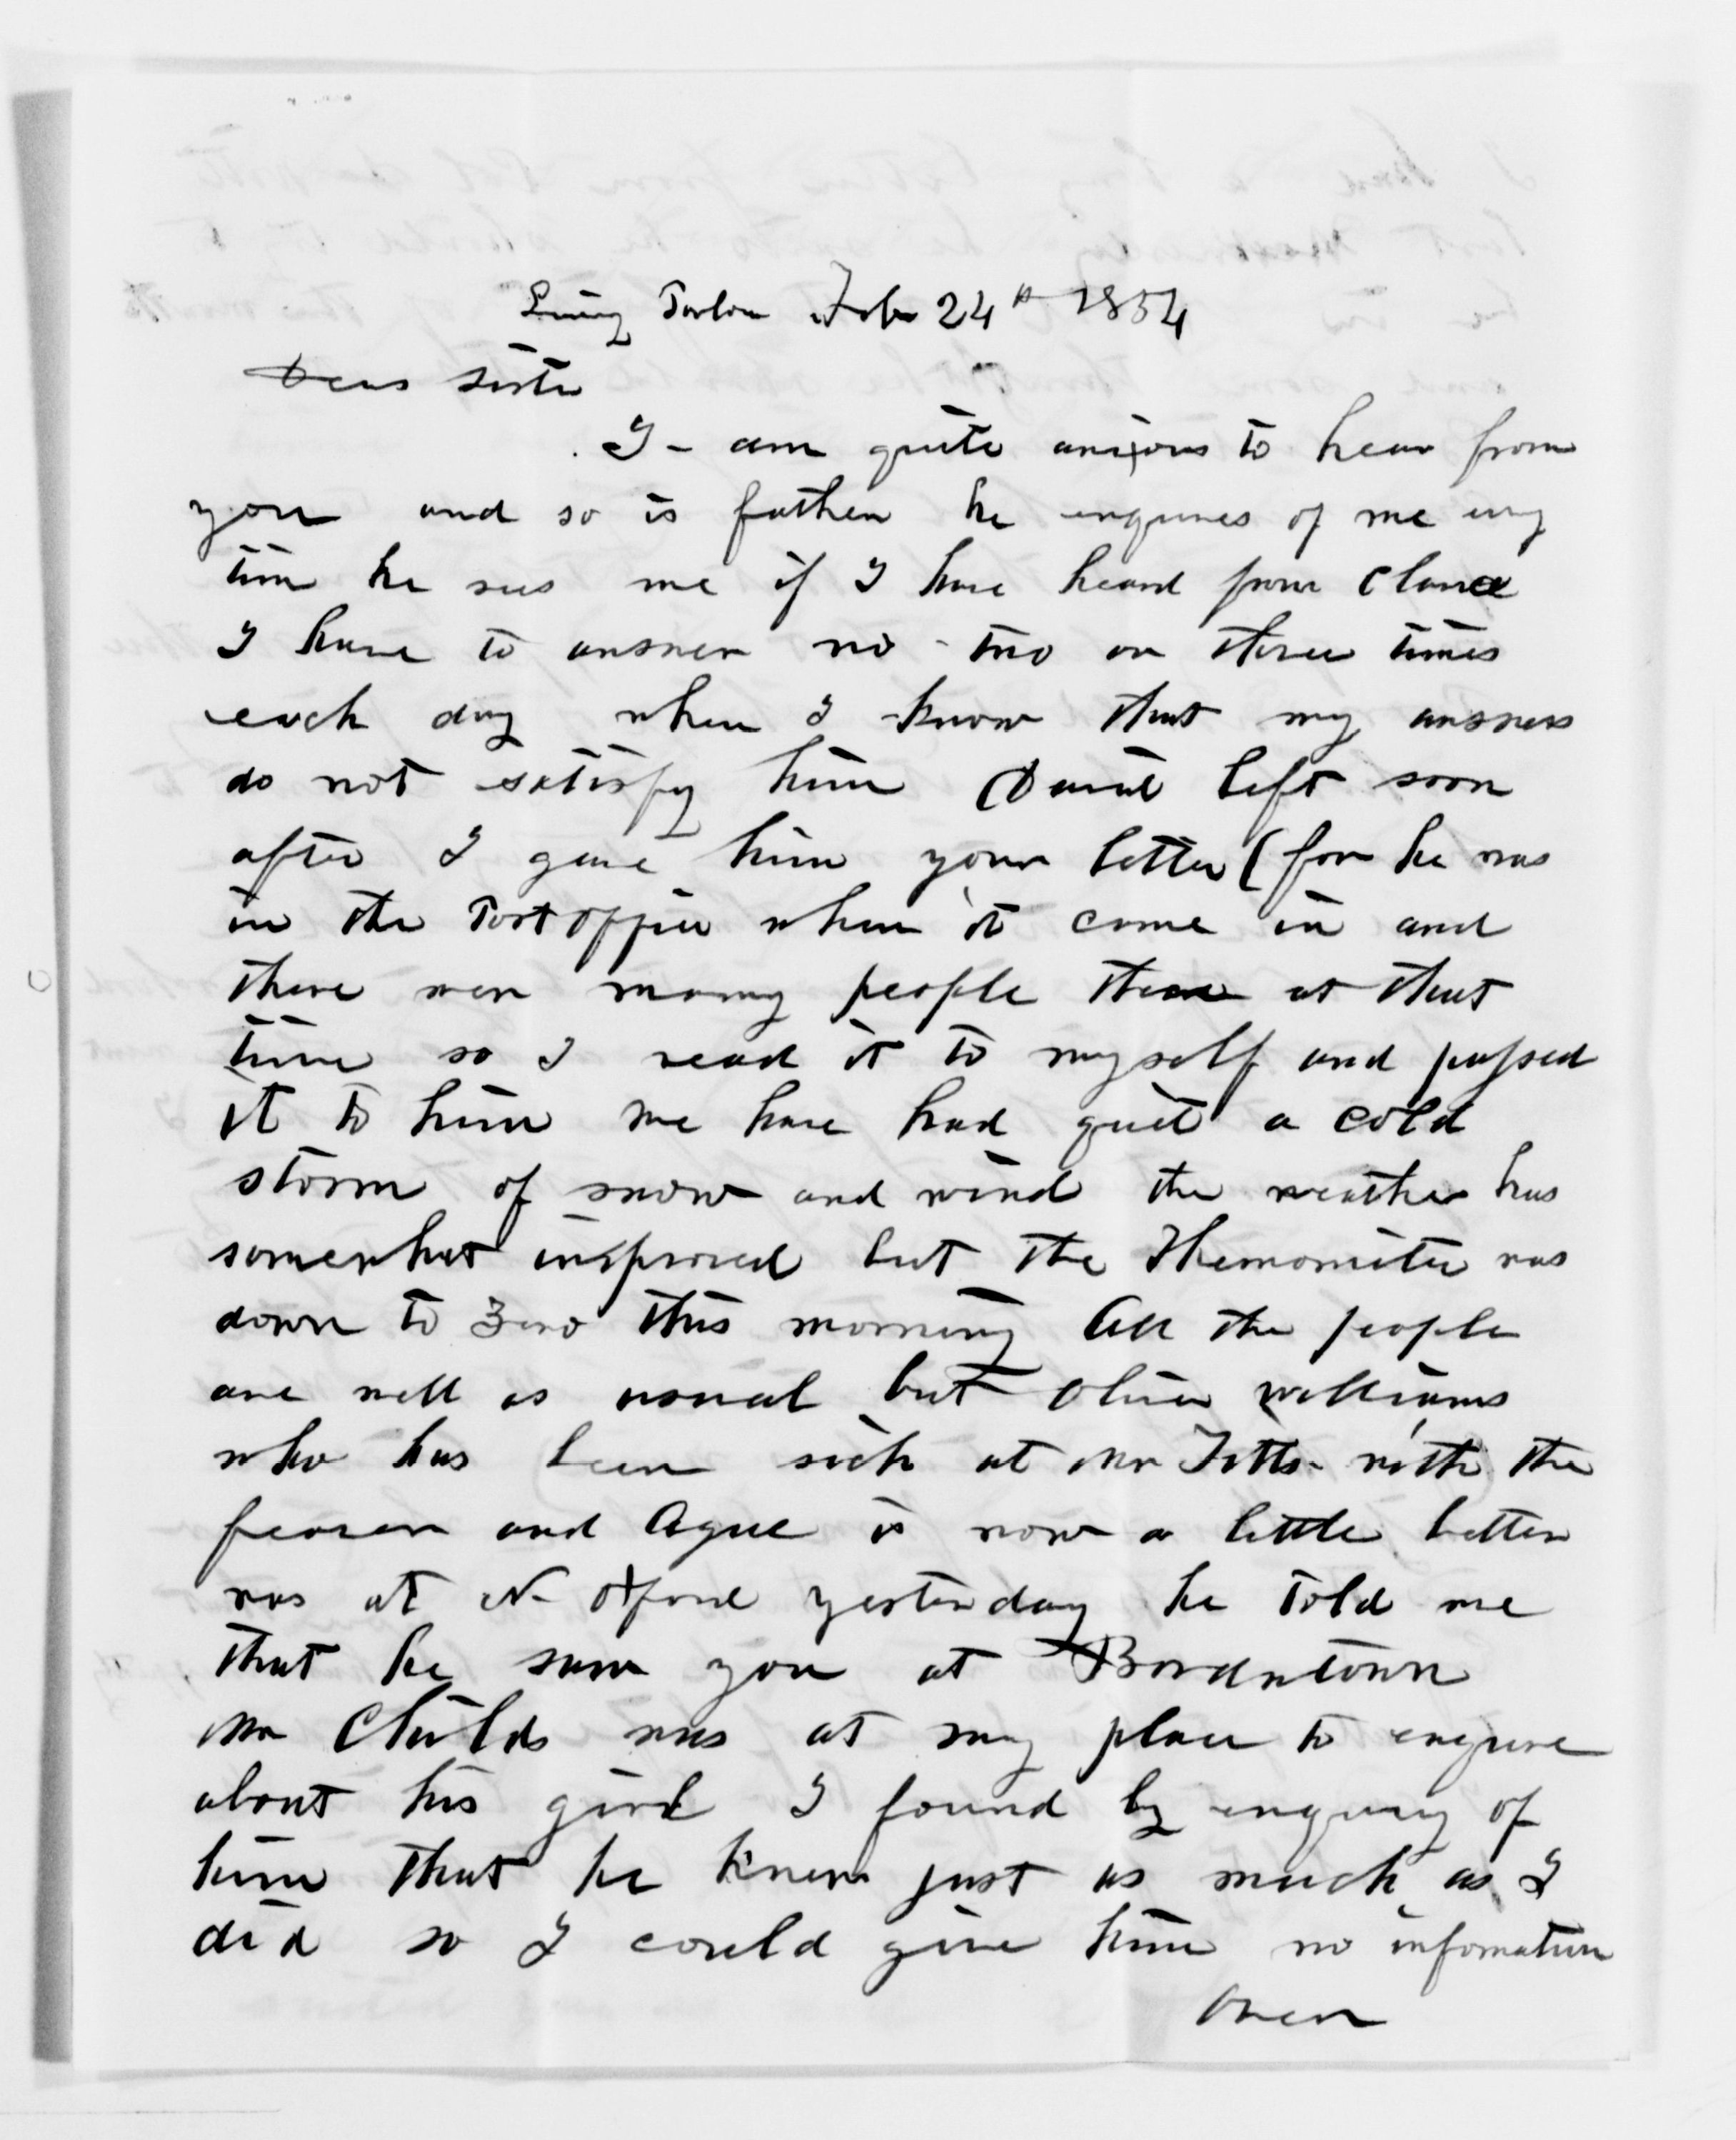 Living Parlor Feb 24th 1854
Dear Sister
I am quite anixous to hear from
you and so is father he enquires of me evry
time he sees me if I have heard from Clara
I have to answer no two or three times
each day when I know that my answers
do not satisfy him David left soon
after I gave him your letter (for he was
in the Post office when it come in and
there were many people there at that
time so I read it to myself and passed
it to him we have had quiet a cold
storm of snow and wind the weather has
somewhat improved but the Themomiter was
down to Zero this morning All the people
are well as usual but Oliver Williams
who has been sick at Mr Fitts with the
feavar and Ague is now a little better
was at N Oxford yesterday he told me
that he saw you at Bordntown
Mr Childs was at my place to enquire
about his girl I found by enquiry of
him that he knew just as much as I
did so I could give him no infomation
Over